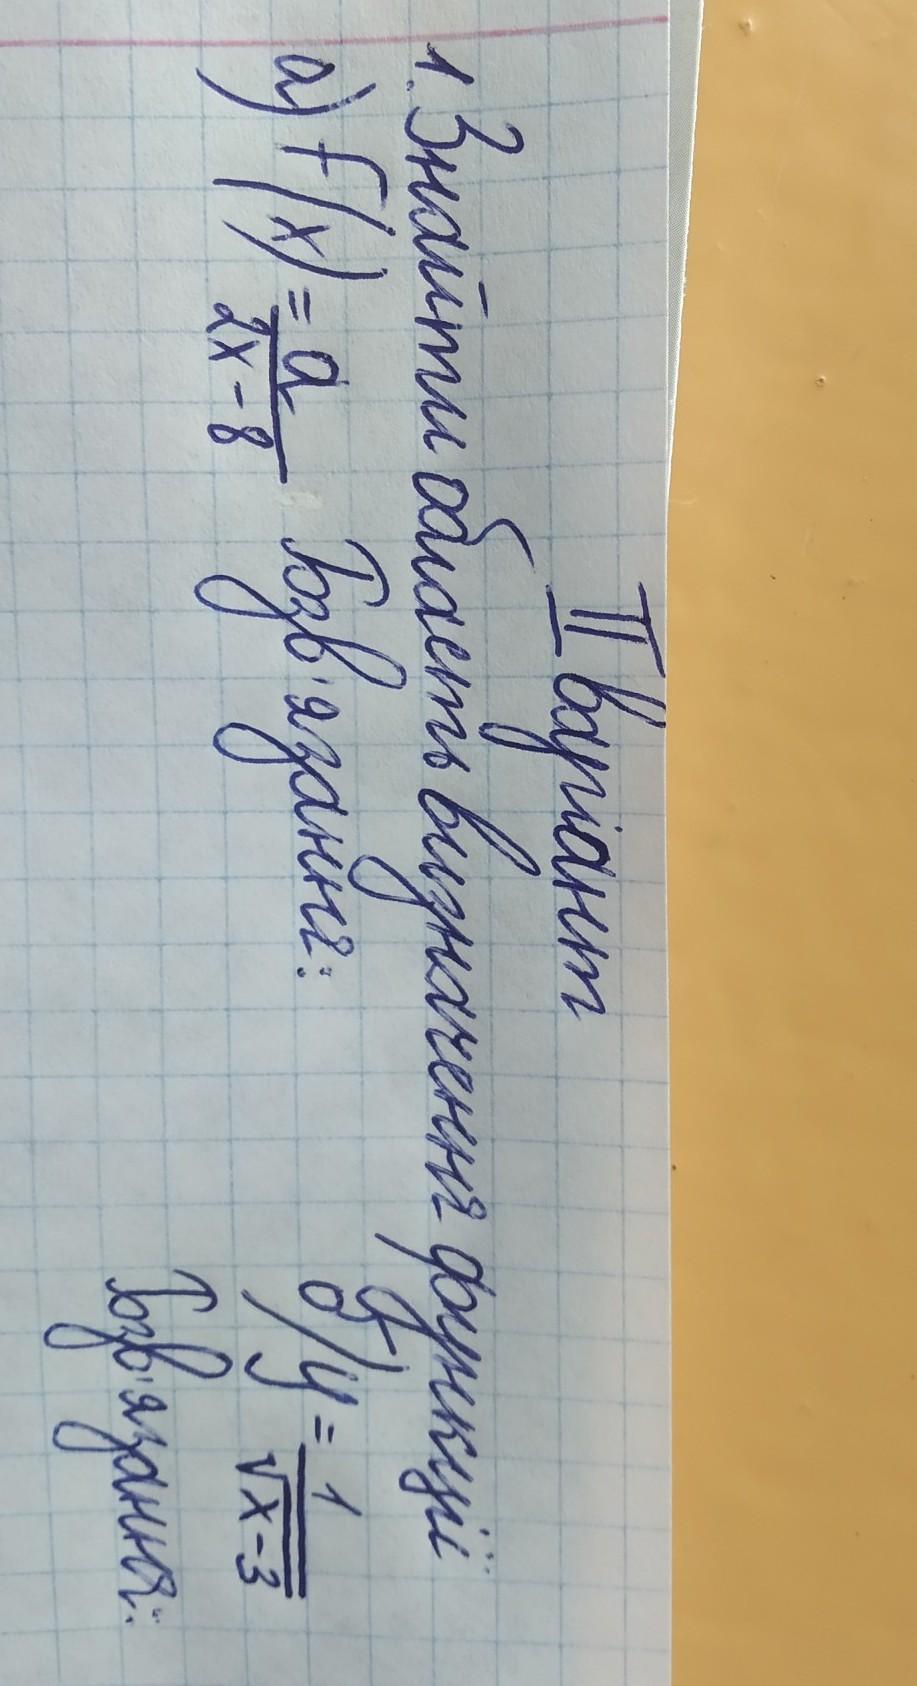 II варіант
1. Знайти область визначення функції
а) f(x) = a/(2x-8) б) y = 1/√(x-3)
Розв'язання:
Розв'язання: